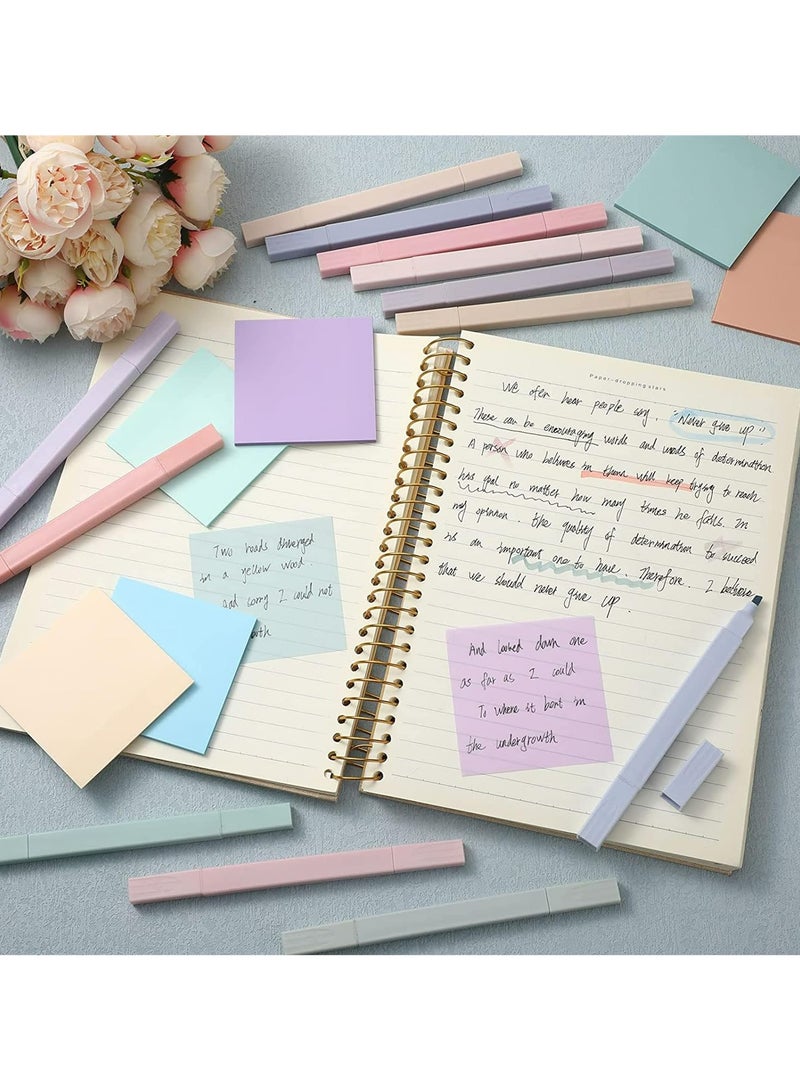 Paper-dropping stars
We ofen hear people say. "Never give up"
These can be encouraging words and words of determination
A person who believes in them will keep trying to reach
his goal no matter how many times he falls. In
my opinion. the quality of determination to succeed
is an important one to have. Therefore. I believe
that we should never give up.
Two roads diverged
in a yellow wood.
and sorry I could not
both
And looked down one
as far as I could
To where it bent in
the undergrowth